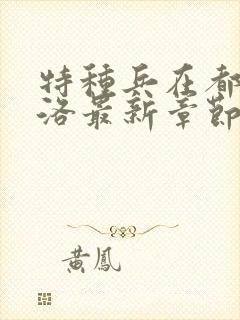 特種兵在都
洛最新章節
黃鳳